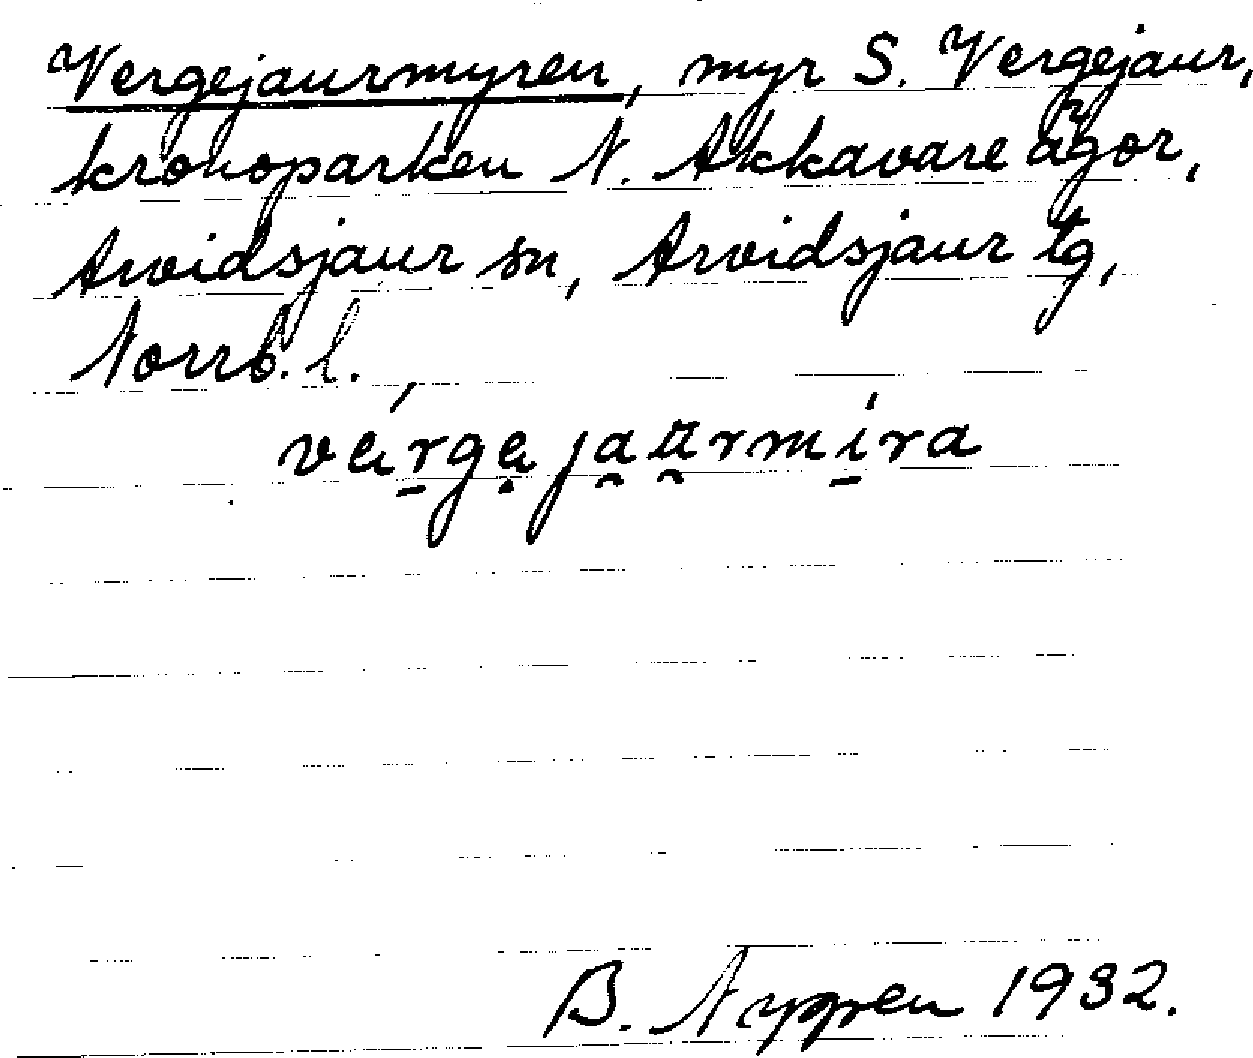 Vergejaurmyren, myr S. Vergejaur,
kronoparken N. Akkavare ägor,
Arvidsjaur sn, Arvidsjaur tg,
Norrb. l.
B. Nygren 1932.